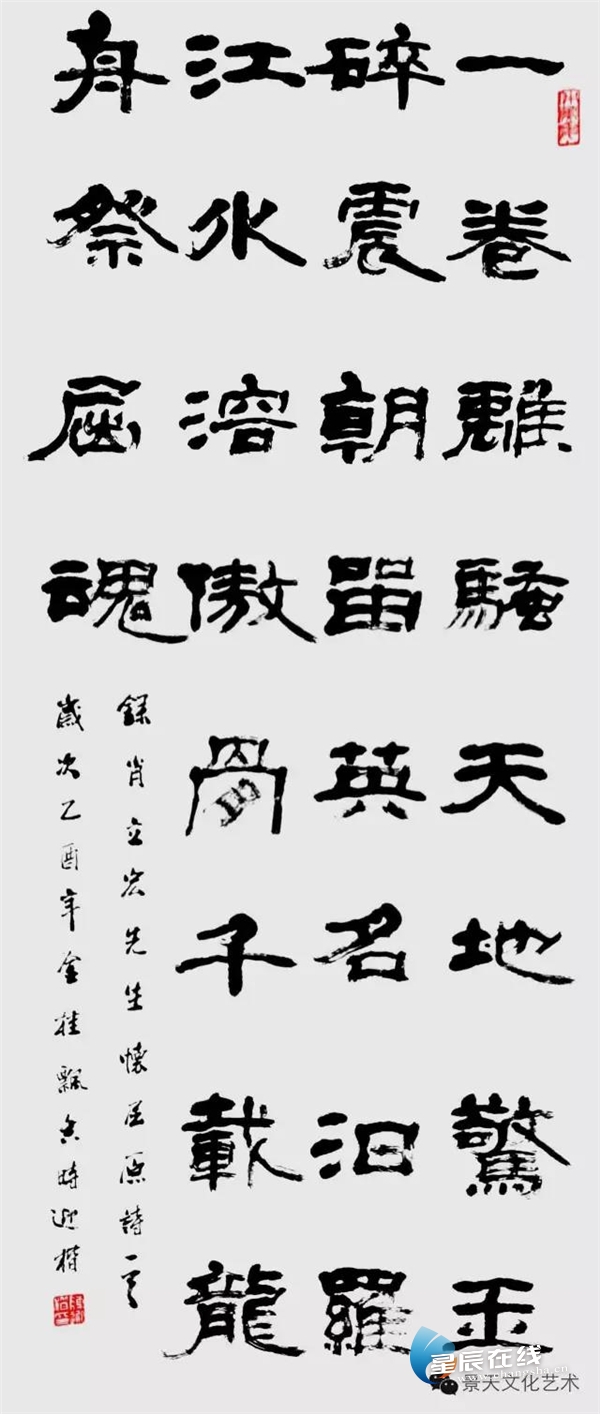 一卷離騷天地驚玉
碎震朝留英名汨羅
江水溶傲骨千載龍
舟祭屈魂
錄肖立宏先生懷屈原詩一首
歲次乙酉年金桂飄香時迎楷
星辰在线
景天文化艺术